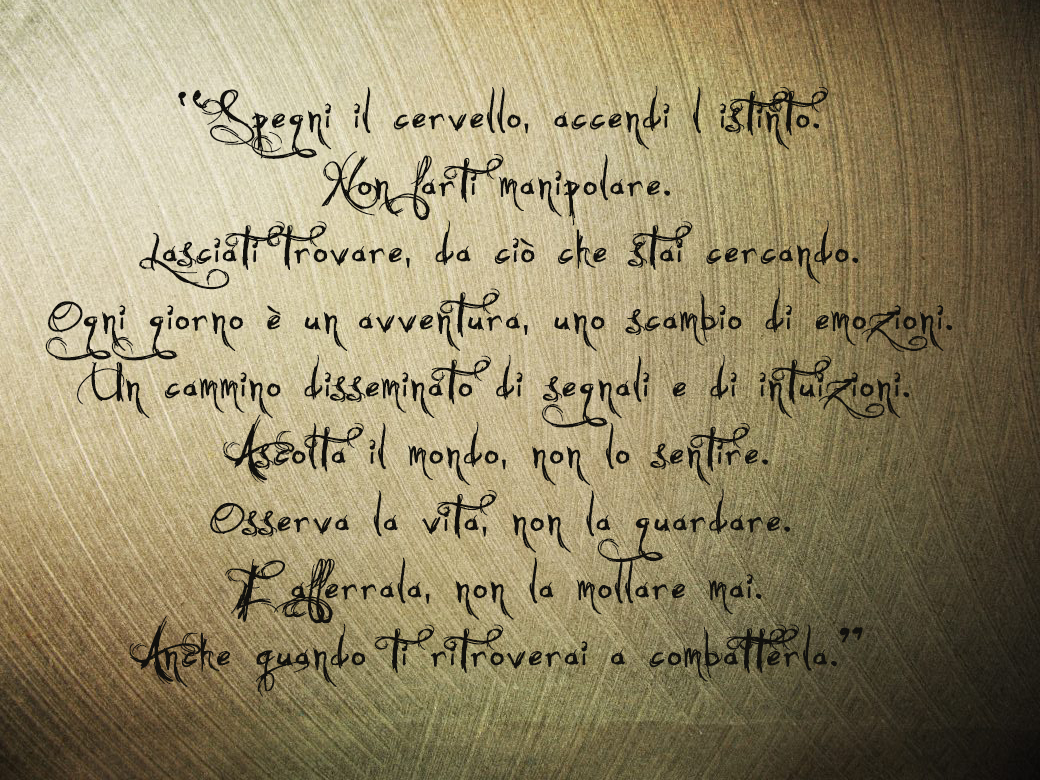 "Spegni il cervello, accendi l istinto.
Non farti manipolare.
Lasciati trovare, da ciò che stai cercando.
Ogni giorno è un avventura, uno scambio di emozioni.
Un cammino disseminato di segnali e di intuizioni.
Ascolta il mondo, non lo sentire.
Osserva la vita, non la guardare.
E afferrala, non la mollare mai.
Anche quando ti ritroverai a combatterla."